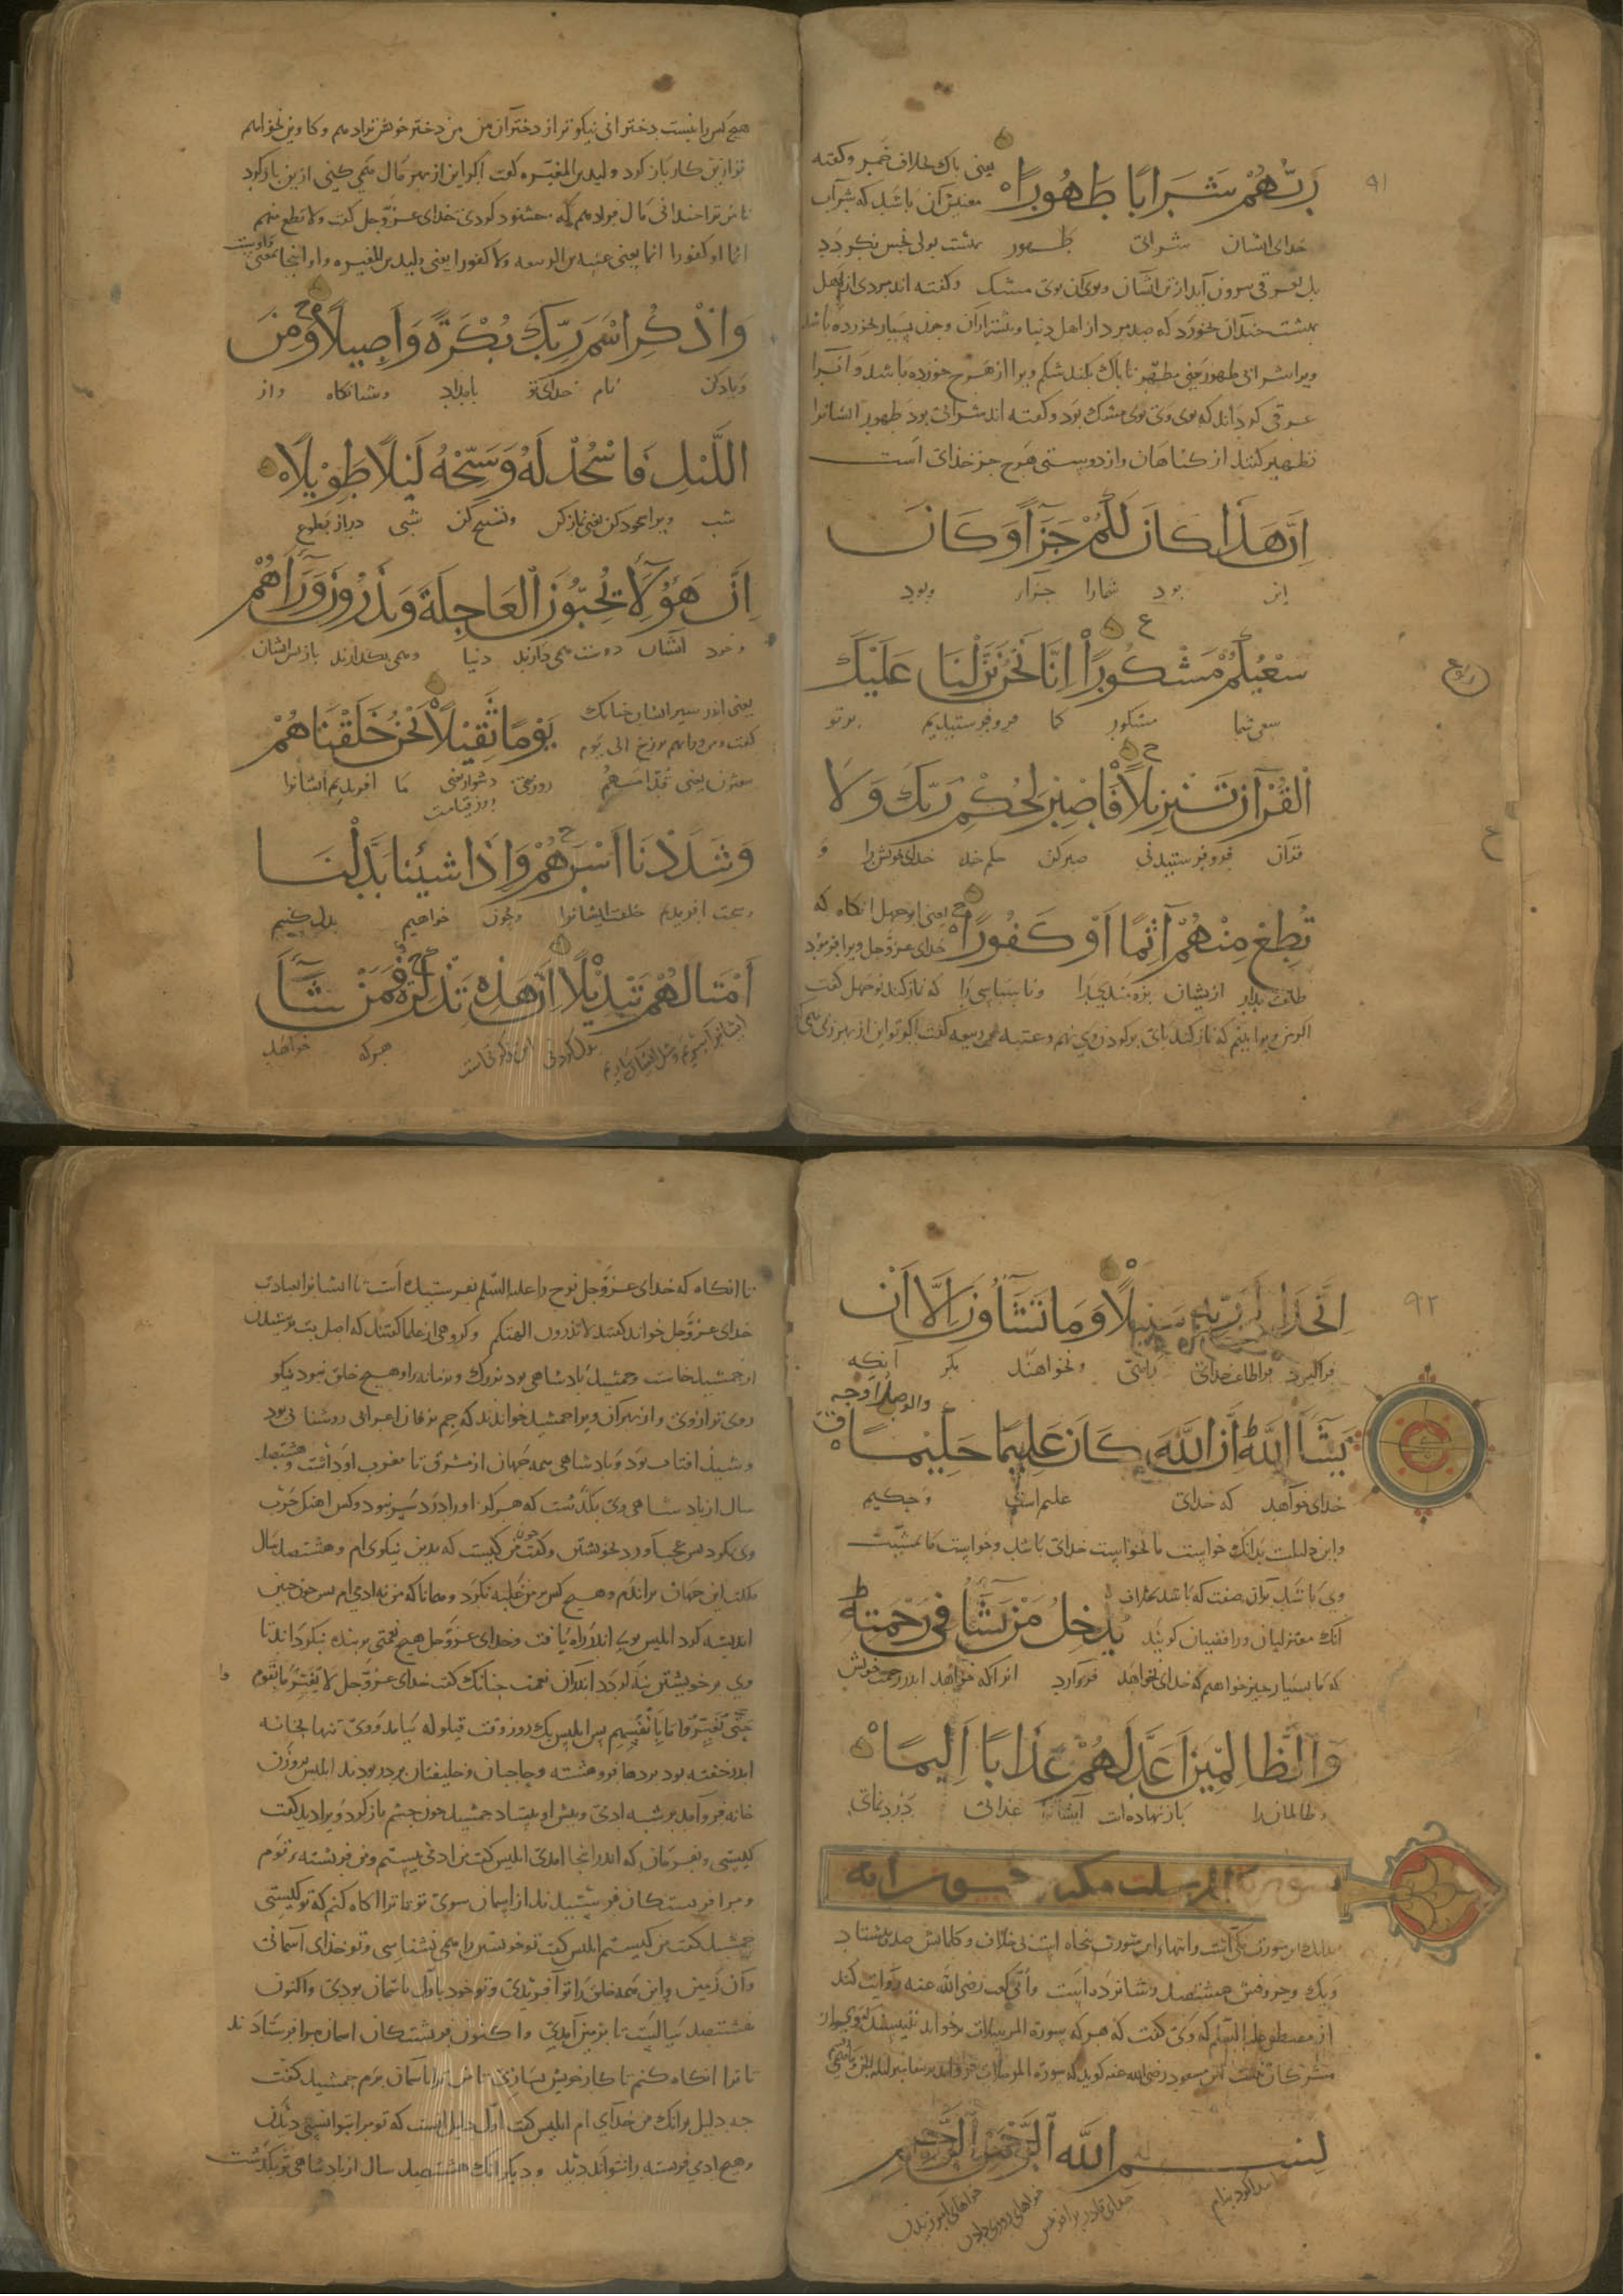 ۹۱
رَبُّهُمْ شَرَابًا طَهُورًا یعنی پاک بخلاف خمر و کفته
معنیش آن باشد که شراب
خدای ایشان شرابی طهور بهشت بولی نجس نکردد
بل بعرقی بیرون آید از تن ایشان و بوی آن بوی مشک و کفته اند مردی از اهل
بهشت چندان بخورد که صد مرد از اهل دنیا و بیشتر از آن و چون بسیار بخورده باشد
ویرا شرابی طهور یعنی مطهّر تا پاک بکند شکم ویرا از هرچ خورده باشد و آنرا
عرقی کرداند که بوی وی بوی مشک بود و کفته اند شرابی بود طهور ایشانرا
تطهیر کننده از کناهان و از دوستی هرچ جز خدای است
اِنَّ هَذَا كَانَ لَكُمْ جَزَاءً وَكَانَ
این بود شمارا جزا و بود
سَعْيُكُمْ مَشْكُورًا اِنَّا نَحْنُ نَزَّلْنَا عَلَيْكَ
سعی شما مشکور ما فرو فرستیدیم بر تو
الْقُرْآنَ تَنْزِيلًا فَاصْبِرْ لِحُكْمِ رَبِّكَ وَلَا
قرآن فرو فرستیدنی صبر کن حکم خدای خویش را و
تُطِعْ مِنْهُمْ آثِمًا اَوْ كَفُورًا یعنی ابو جهل انکاه که
خدای عزّوجل ویرا فرمود
طاعت مدار ازیشان بزه مندی را و ناسپاسی را که نماز کند بوجهل کفت
اکر من ویرا بینم که نماز کند پای بر کردن وی نهم و عتبه بن ربیعه کفت اکر تو این از بهر زن می
هیچ کس را نیست دخترانی نیکوتر از دختران من من دختر خویش ترا دهم و کاوین نخواهم
تو ازین کار باز کرد و لید بن المغیره کفت اکر این از بهر مال می کنی ازین باز کرد
تا من ترا چندانی مال دهم که خشنود کردی خدای عزّوجل کفت ولا تطع منهم
آثما او کفورا آثما یعنی عتبه بن الربیعه ولا کفورا یعنی ولید بن المغیره و او اینجا بمعنی واوست
وَاذْكُرِ اسْمَ رَبِّكَ بُكْرَةً وَاَصِيلًا وَمِنَ
و یاد کن نام خدای تو بامداد و شبانکاه و از
اللَّيْلِ فَاسْجُدْ لَهُ وَسَبِّحْهُ لَيْلًا طَوِيلًا
شب ویرا سجود کن یعنی نماز کن و تسبیح کن شبی دراز بتطوع
اِنَّ هَؤُلَاءِ يُحِبُّونَ الْعَاجِلَةَ وَيَذَرُونَ وَرَاءَهُمْ
ایشان دوست می دارند دنیا و می بکذارند باز پس ایشان
یعنی اندر پیش ایشان چنانک يَوْمًا ثَقِيلًا نَحْنُ خَلَقْنَاهُمْ
کفت و من ورایهم برزخ الی یوم
یبعثون یعنی قدّامهم روزی دشوار یعنی ما آفریدیم ایشانرا
روز قیامت
وَشَدَدْنَا اَسْرَهُمْ وَاِذَا شِئْنَا بَدَّلْنَا
افریدیم خلقت ایشانرا و چون خواهیم بدل کنیم
اَمْثَالَهُمْ تَبْدِيلًا اِنَّ هَذِهِ تَذْكِرَةٌ فَمَنْ شَاءَ
بدل کردنی این ذکری است هر که خواهد
۹۲
اتَّخَذَ اِلَى رَبِّهِ سَبِيلًا وَمَا تَشَاؤُنَ اِلَّا اَنْ
فرا کیرد فرا طاعت خدای راهی و نخواهند مکر آنکه
يَشَاءَ اللَّهُ اِنَّ اللَّهَ كَانَ عَلِيمًا حَكِيمًا
خدای خواهد که خدای علیم است و حکیم
و این دلیلست بدانک خواست ما نخواست خدای باشد و خواست ما بمشیت
وی باشد بدان صفت که باشد بخلاف يُدْخِلُ مَنْ يَشَاءُ فِي رَحْمَتِهِ
آنک معتزلیان و رافضیان کویند
که ما بسیار چیز خواهیم که خدای نخواهد درآرد انرا که خواهد اندر رحمت خویش
وَالظَّالِمِينَ اَعَدَّ لَهُمْ عَذَابًا اَلِيمًا
و ظالمانرا باز نهاده است ایشانرا عذابی دردنمای
سورة المرسلت مکیه خمسون آیه
بدانک این سورت مکی است و آیتهاء این سورت پنجاه است بی خلاف و کلماتش صد هشتاد
و یک و حروفش هشتصد و شانزده است و ابی کعب رضی الله عنه روایت کند
از مصطفی علیه السّلم که وی کفت که هر که سورة المرسلات برخواند نبیسند که وی از
مشرکان نیست ابن مسعود رضی الله عنه کوید که سورة المرسلات
بسم الله الرَّحْمَنِ الرَّحِيمِ
تا انکاه که خدای عزّوجل نوح را علیه السّلم بفرستیده است تا ایشانرا بعبادت
خدای عزّوجل خواند کفتند لا تذرون الهتکم و کروهی از علما کفتند که اصل بت پرستیدن
از جمشید خاست و جمشید پادشاهی بود بزرک و بزمانه او هیچ خلق نبود نیکو
روی تر از وی و از بهر آن ویرا جمشید خواندند که جم بزفان اعرابی روشنایی بود
و شید افتاب بود و پادشاهی همه جهان از مشرق تا مغرب او داشت و هشتصد
سال از پادشاهی وی بکذشت که هرکز او را درد سر نبود و کس اهنک حرب
وی نکرد پس عجب آورد بخویشتن و کفت چون من کیست که بدین نیکوی ام و هشتصد سال
ملکت این جهان براندم و هیچ کس بر من غلبه نکرد و همانا که من نه ادمی ام پس چون چنین
اندیشه کرد ابلیس بوی اندر راه یافت و خدای عزّوجل هیچ نعمتی بر بنده نکرداند تا
وی بر خویشتن بنکرداند آن نعمت چنانک کفت خدای عزّوجل لا یغیّر ما بقوم
حتّی یغیّروا ما بانفسهم پس ابلیس یک روز وقت قیلوله بیامد و وی تنها بخانه
اندر خفته بود پردها فروهشته و حاجبان و خلیفتان بر در بودند ابلیس از روزن
خانه فرو آمد بر شبه ادمی و پیش او بیستاد جمشید چون چشم باز کرد ویرا دید کفت
کیستی و بفرمان که اندر اینجا امدی ابلیس کفت من ادمی نیستم و من فریشته بر توم
و مرا فریستکان فرستیدند از اسمان سوی تو تا ترا اکاه کنم که تو کیستی
جمشید کفت من کیستم ابلیس کفت تو خویشتن را می نشناسی و تو خدای آسمانی
و آن زمین و این همه خلق را تو آفریدی و تو خود باوّل باسمان بودی و اکنون
هشتصد سالست تا بزمین آمدی و اکنون فریشتکان اسمان مرا فرستادند
تا ترا اکاه کنم تا کار خویش بسازی تا من ترا باسمان برم جمشید کفت
چه دلیل برانک من خدای ام ابلیس کفت اوّل دلیل انست که تو مرا بتوانستی دیدن
و هیچ ادمی فریسته را نتواند دید و دیکر انک هشتصد سال از پادشاهی تو بکذشت